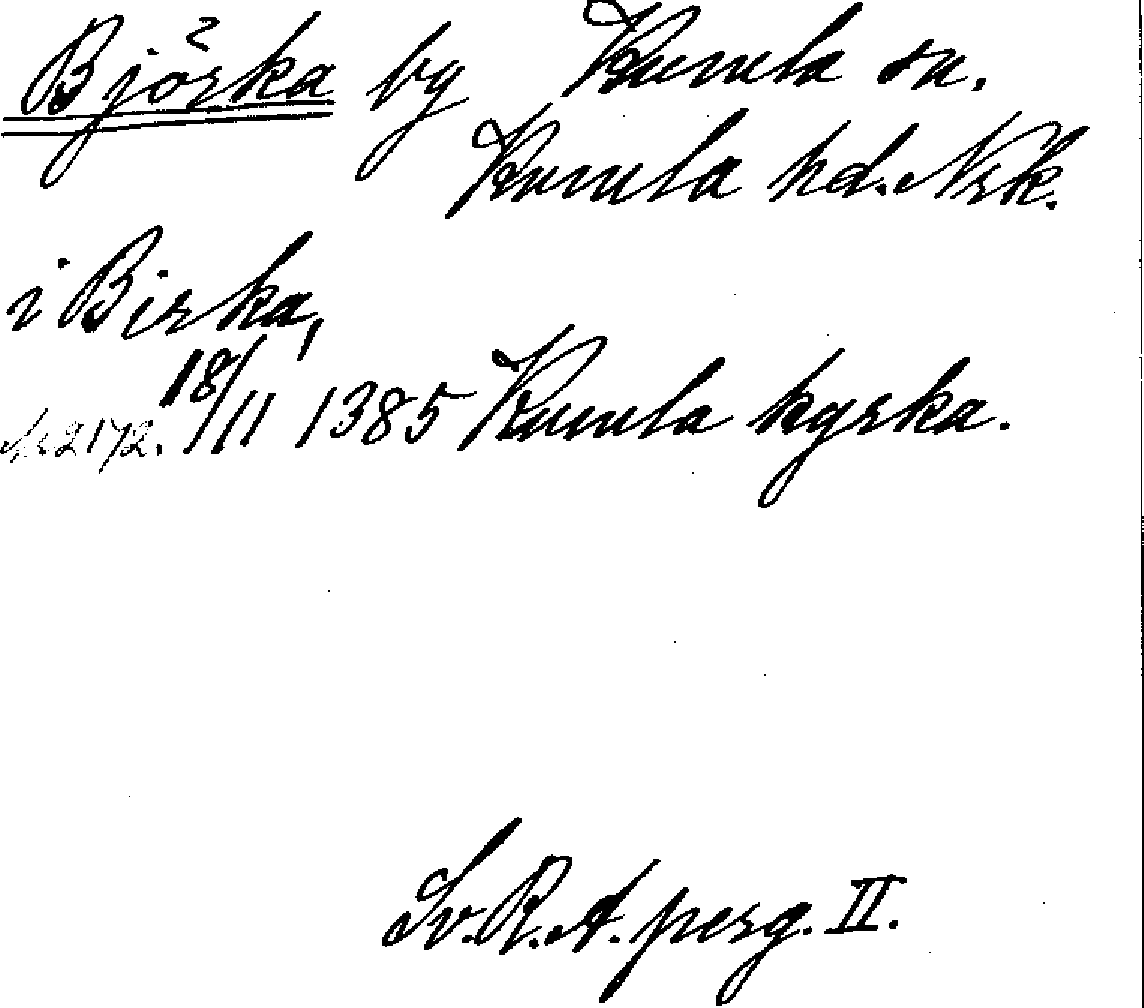 Björka by Kumla sn.
Kumla hd. Nrk.
i Birka,
Nr 2172. 18/11 1385 Kumla kyrka.
Sv. R. A. perg. II.